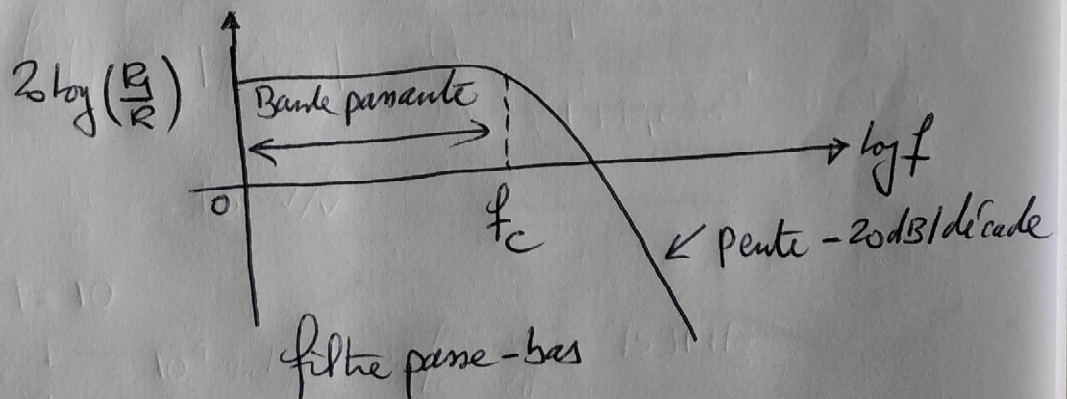 20 log (R1/R)
Bande passante
log f
0
fc
pente -20dB/décade
filtre passe-bas